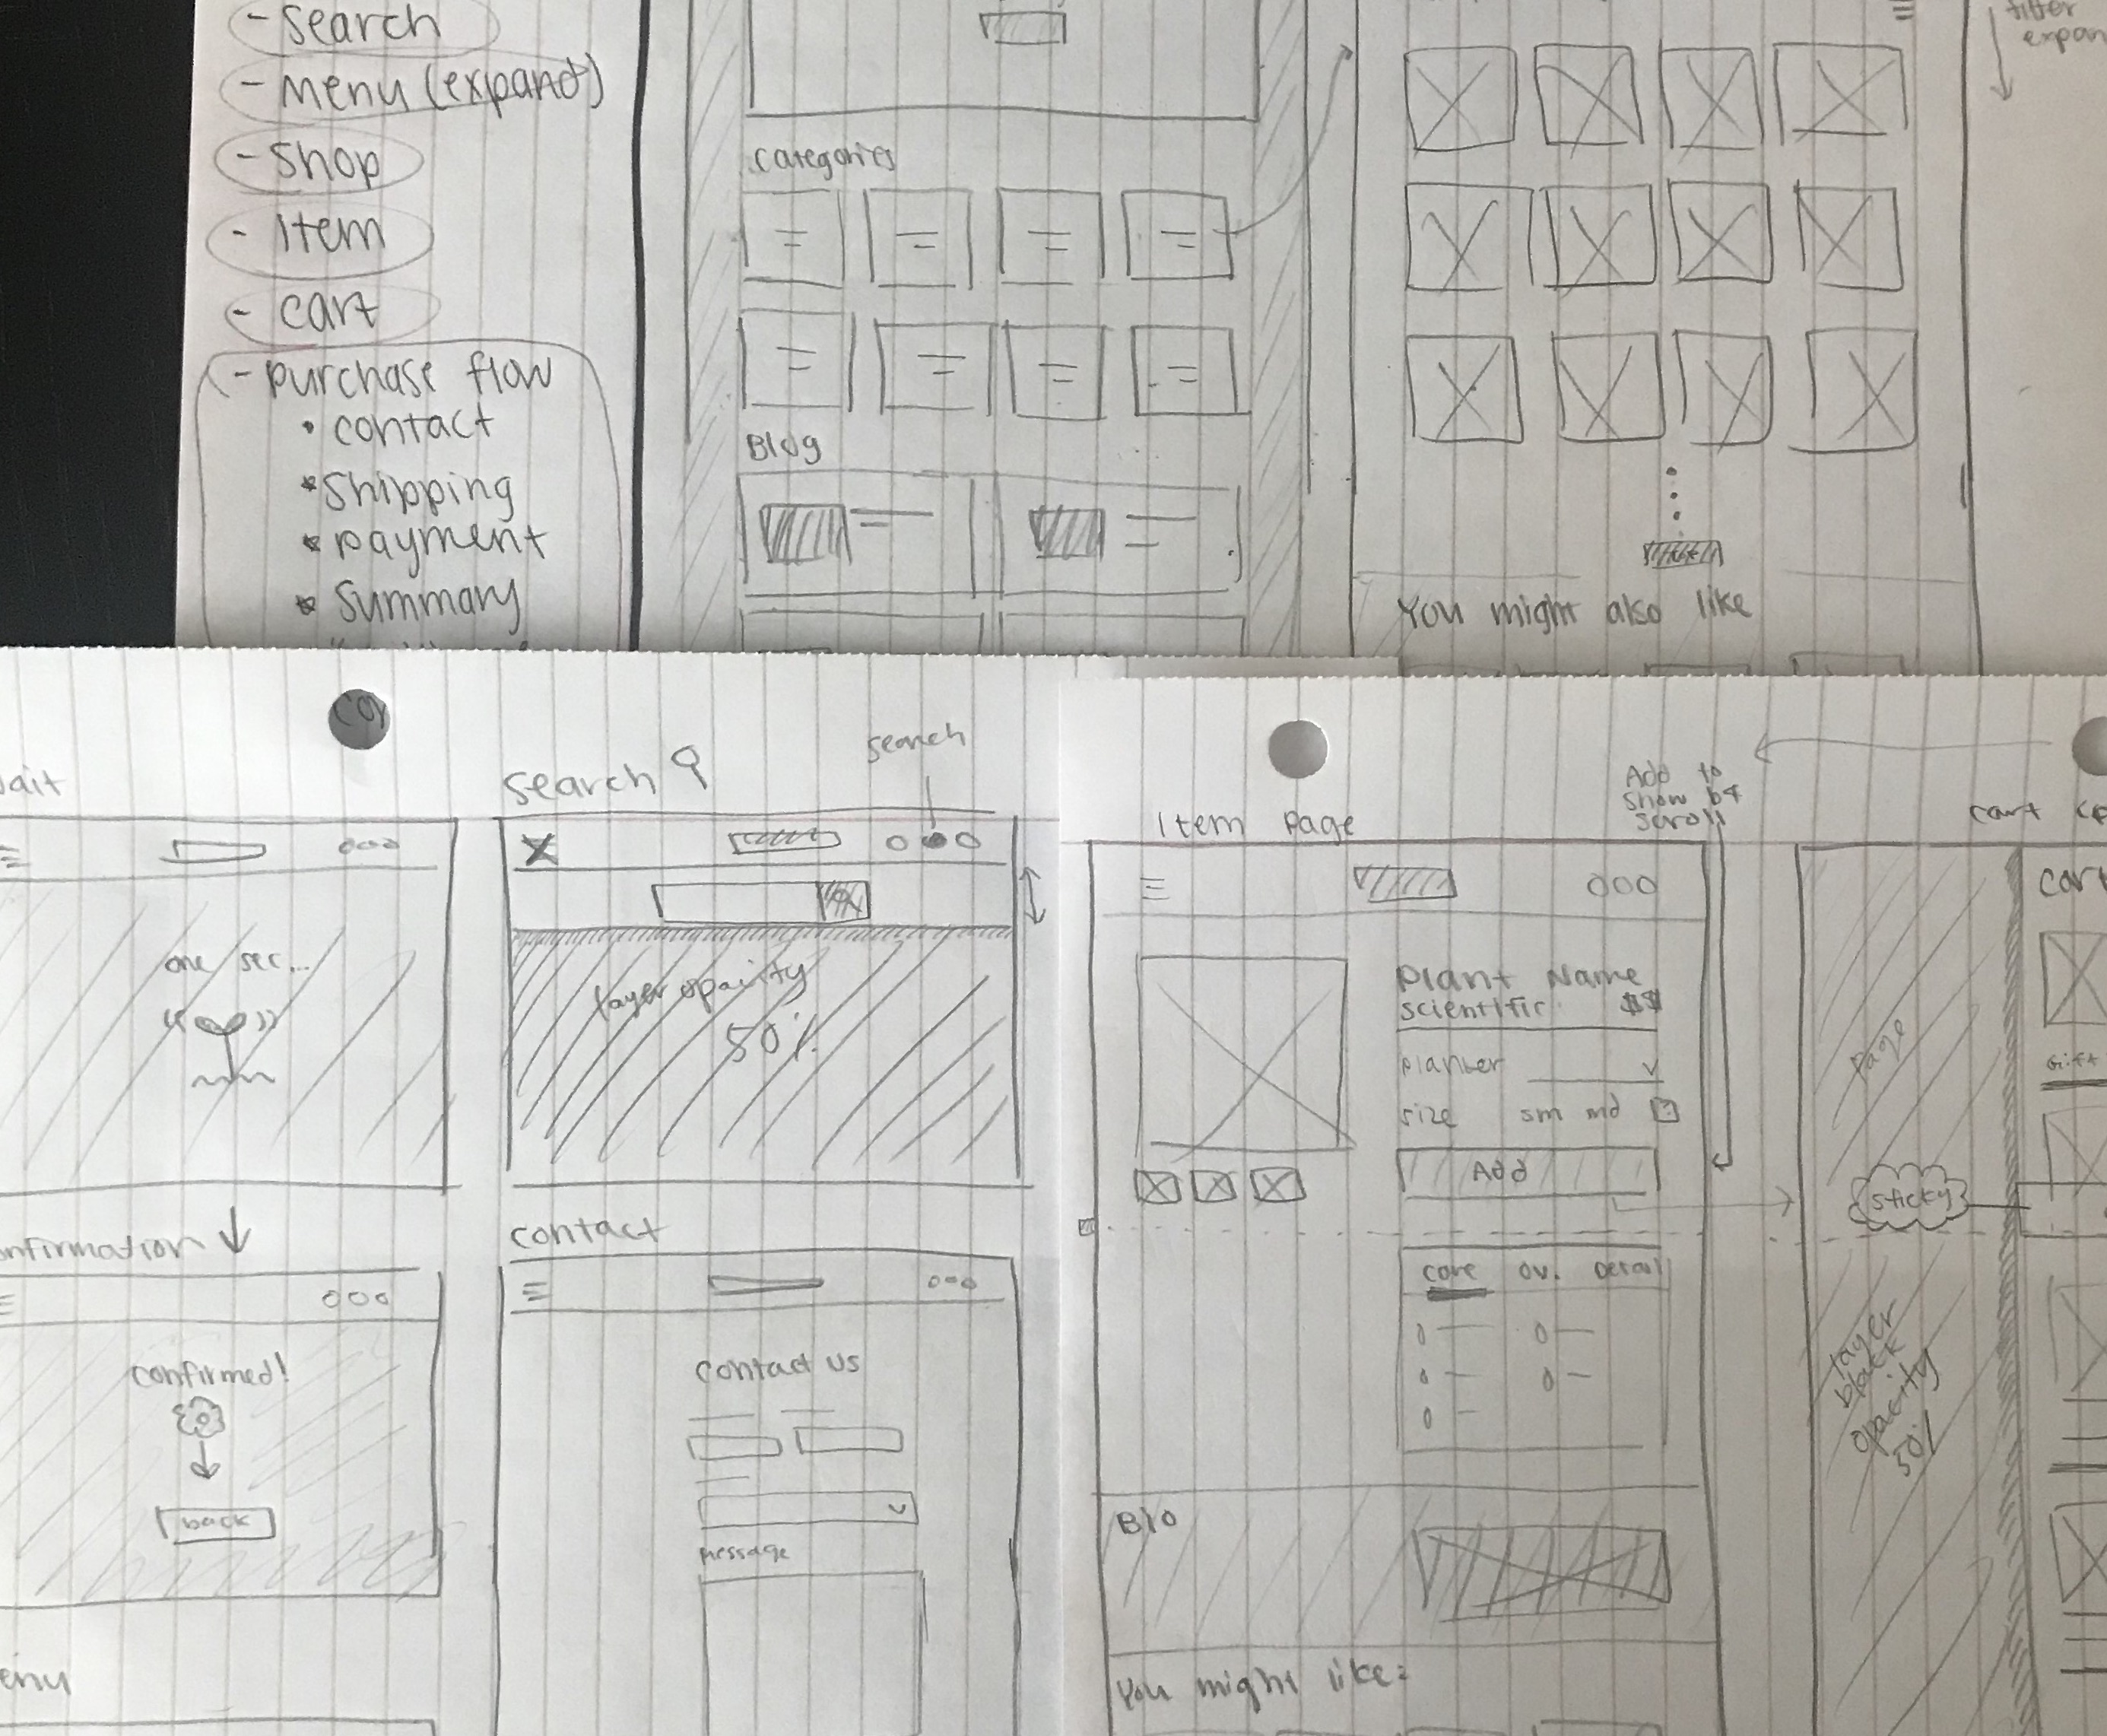 - search
- menu (expand)
- shop
- Item
- cart
- purchase flow
• contact
• Shipping
• payment
• Summary
categories
Blog
filter
expan
You might also like
ait
one sec...
onfirmation
confirmed!
back
enu
search
search
layer opacity
50%
contact
contact us
message
Item Page
Add to
show b4
scroll
Plant Name
scientific $$
planter
size sm md
Add
care ov. Detail
Bio
You might like:
cart
Page
sticky
layer
black
opacity
50%
Car
Gift